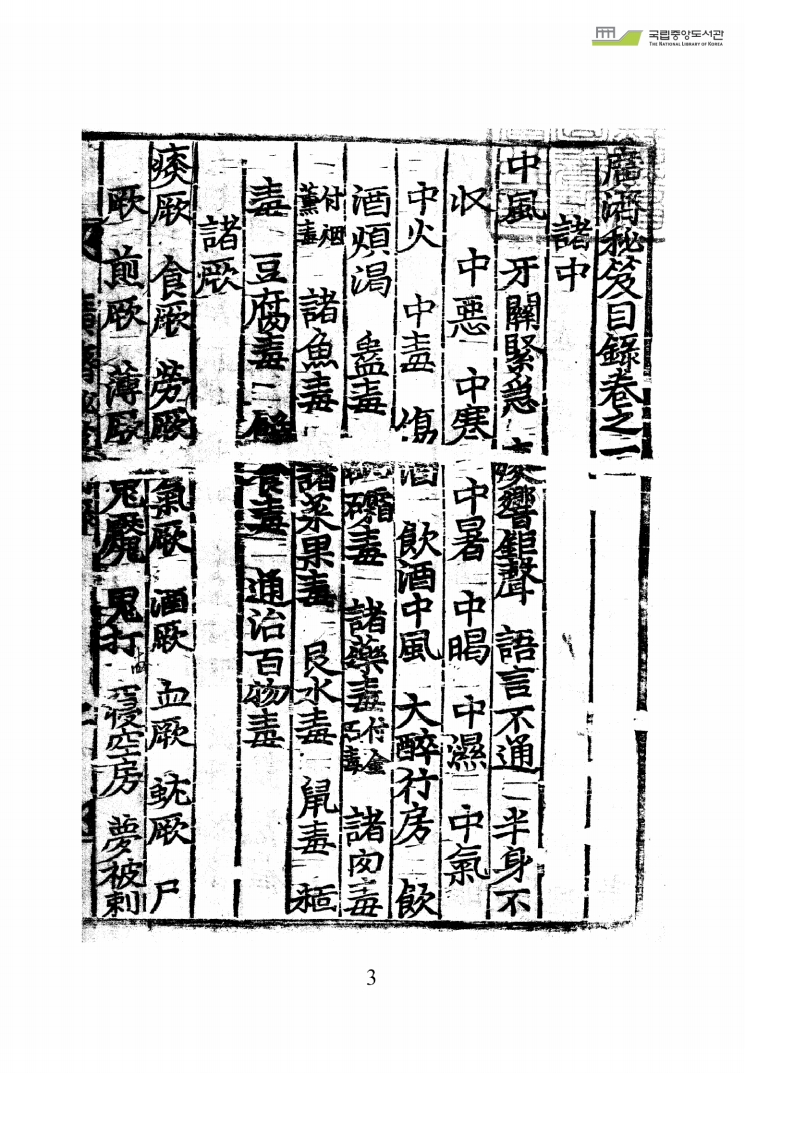 국립중앙도서관
THE NATIONAL LIBRARY OF KOREA
廣濟秘笈目錄卷之一
諸中
中風 牙關緊急 痰響鋸聲 語言不通 半身不
收 中惡 中寒 中暑 中暍 中濕 中氣
中火 中毒 傷酒 飲酒中風 大醉行房 飲
酒煩渴 蠱毒 礵毒 諸藥毒 付金石毒 諸肉毒
付烟薰毒 諸魚毒 諸菜果毒 艮水毒 鼠毒 糆
毒 豆腐毒 食毒 通治百物毒
諸厥
痰厥 食厥 劳厥 氣厥 酒厥 血厥 蚘厥 尸
厥 煎厥 薄厥 鬼魘 鬼打 寑空房 夢被刺
3